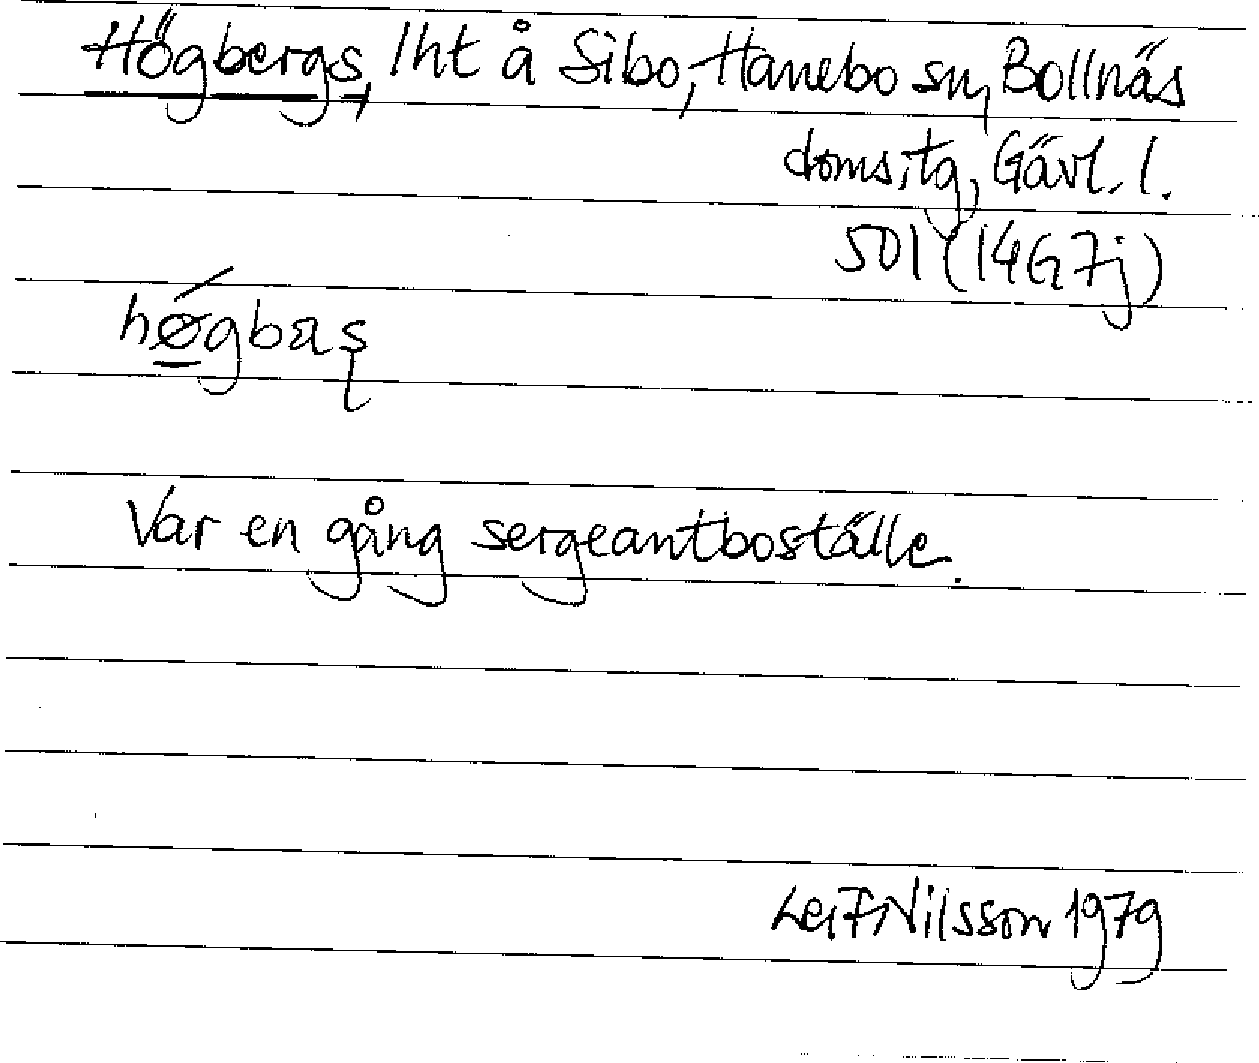 Högbergs, lht å Sibo, Hanebo sn, Bollnäs
domsitg, Gävl. l.
501 (14G7j)
Var en gång sergeantboställe.
Leif Nilsson 1979